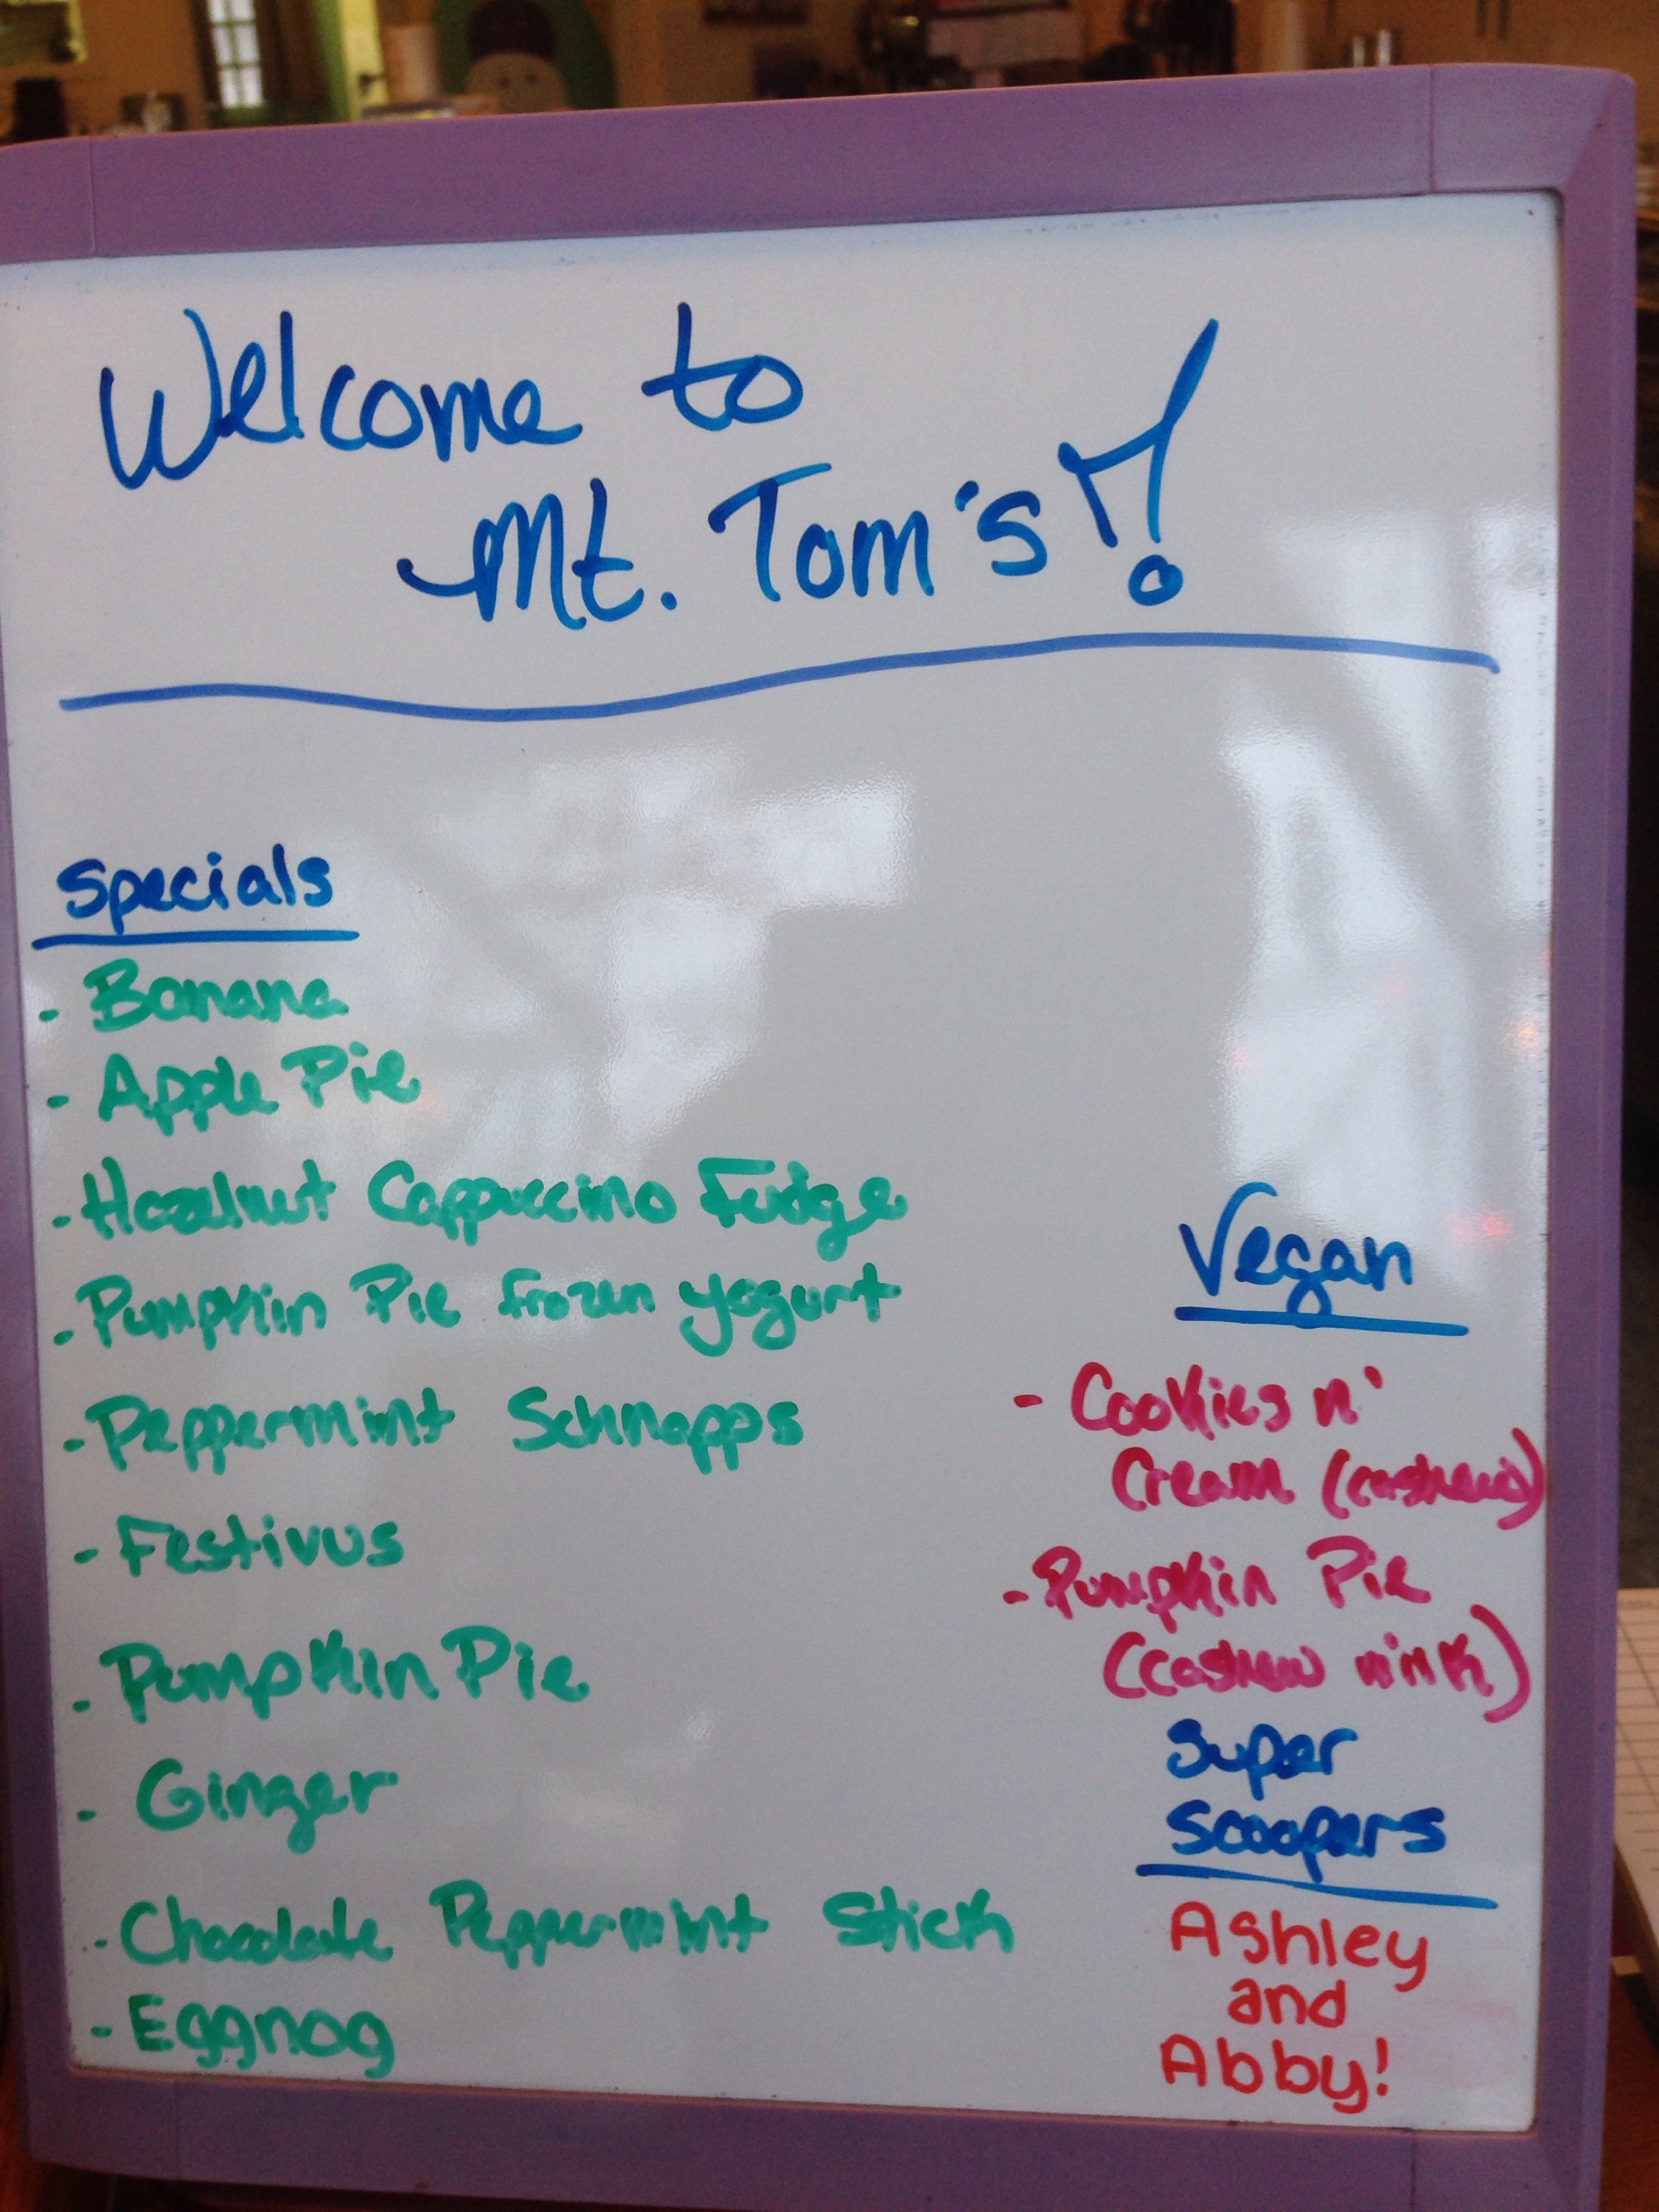 Welcome to
Mt. Tom's!
Specials
- Banana
- Apple Pie
- Hazelnut Cappuccino Fudge
- Pumpkin Pie frozen yogurt
- Peppermint Schnapps
- Festivus
- Pumpkin Pie
- Ginger
- Chocolate Peppermint Stick
- Eggnog
Vegan
- Cookies n'
Cream (cashews)
- Pumpkin Pie
(cashew milk)
Super
Scoopers
Ashley
and
Abby!